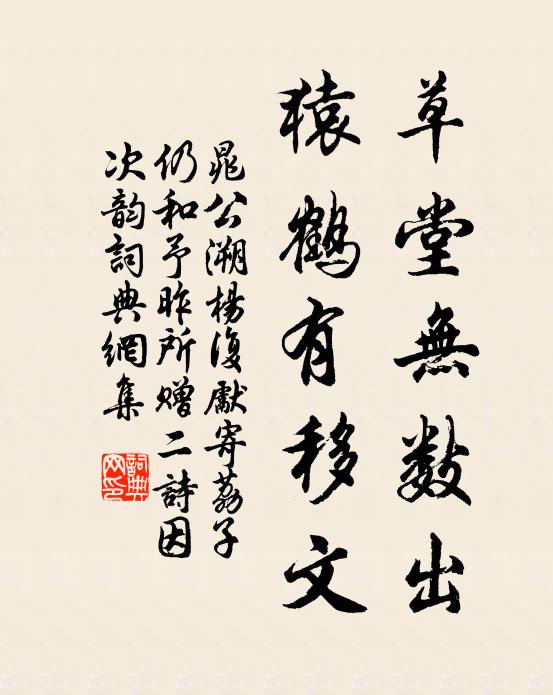 草堂無数出
猿鶴有移文
晁公溯楊復獻寄荔子
仍和予昨所赠二詩因
次韵詞典網集
詞典
网印